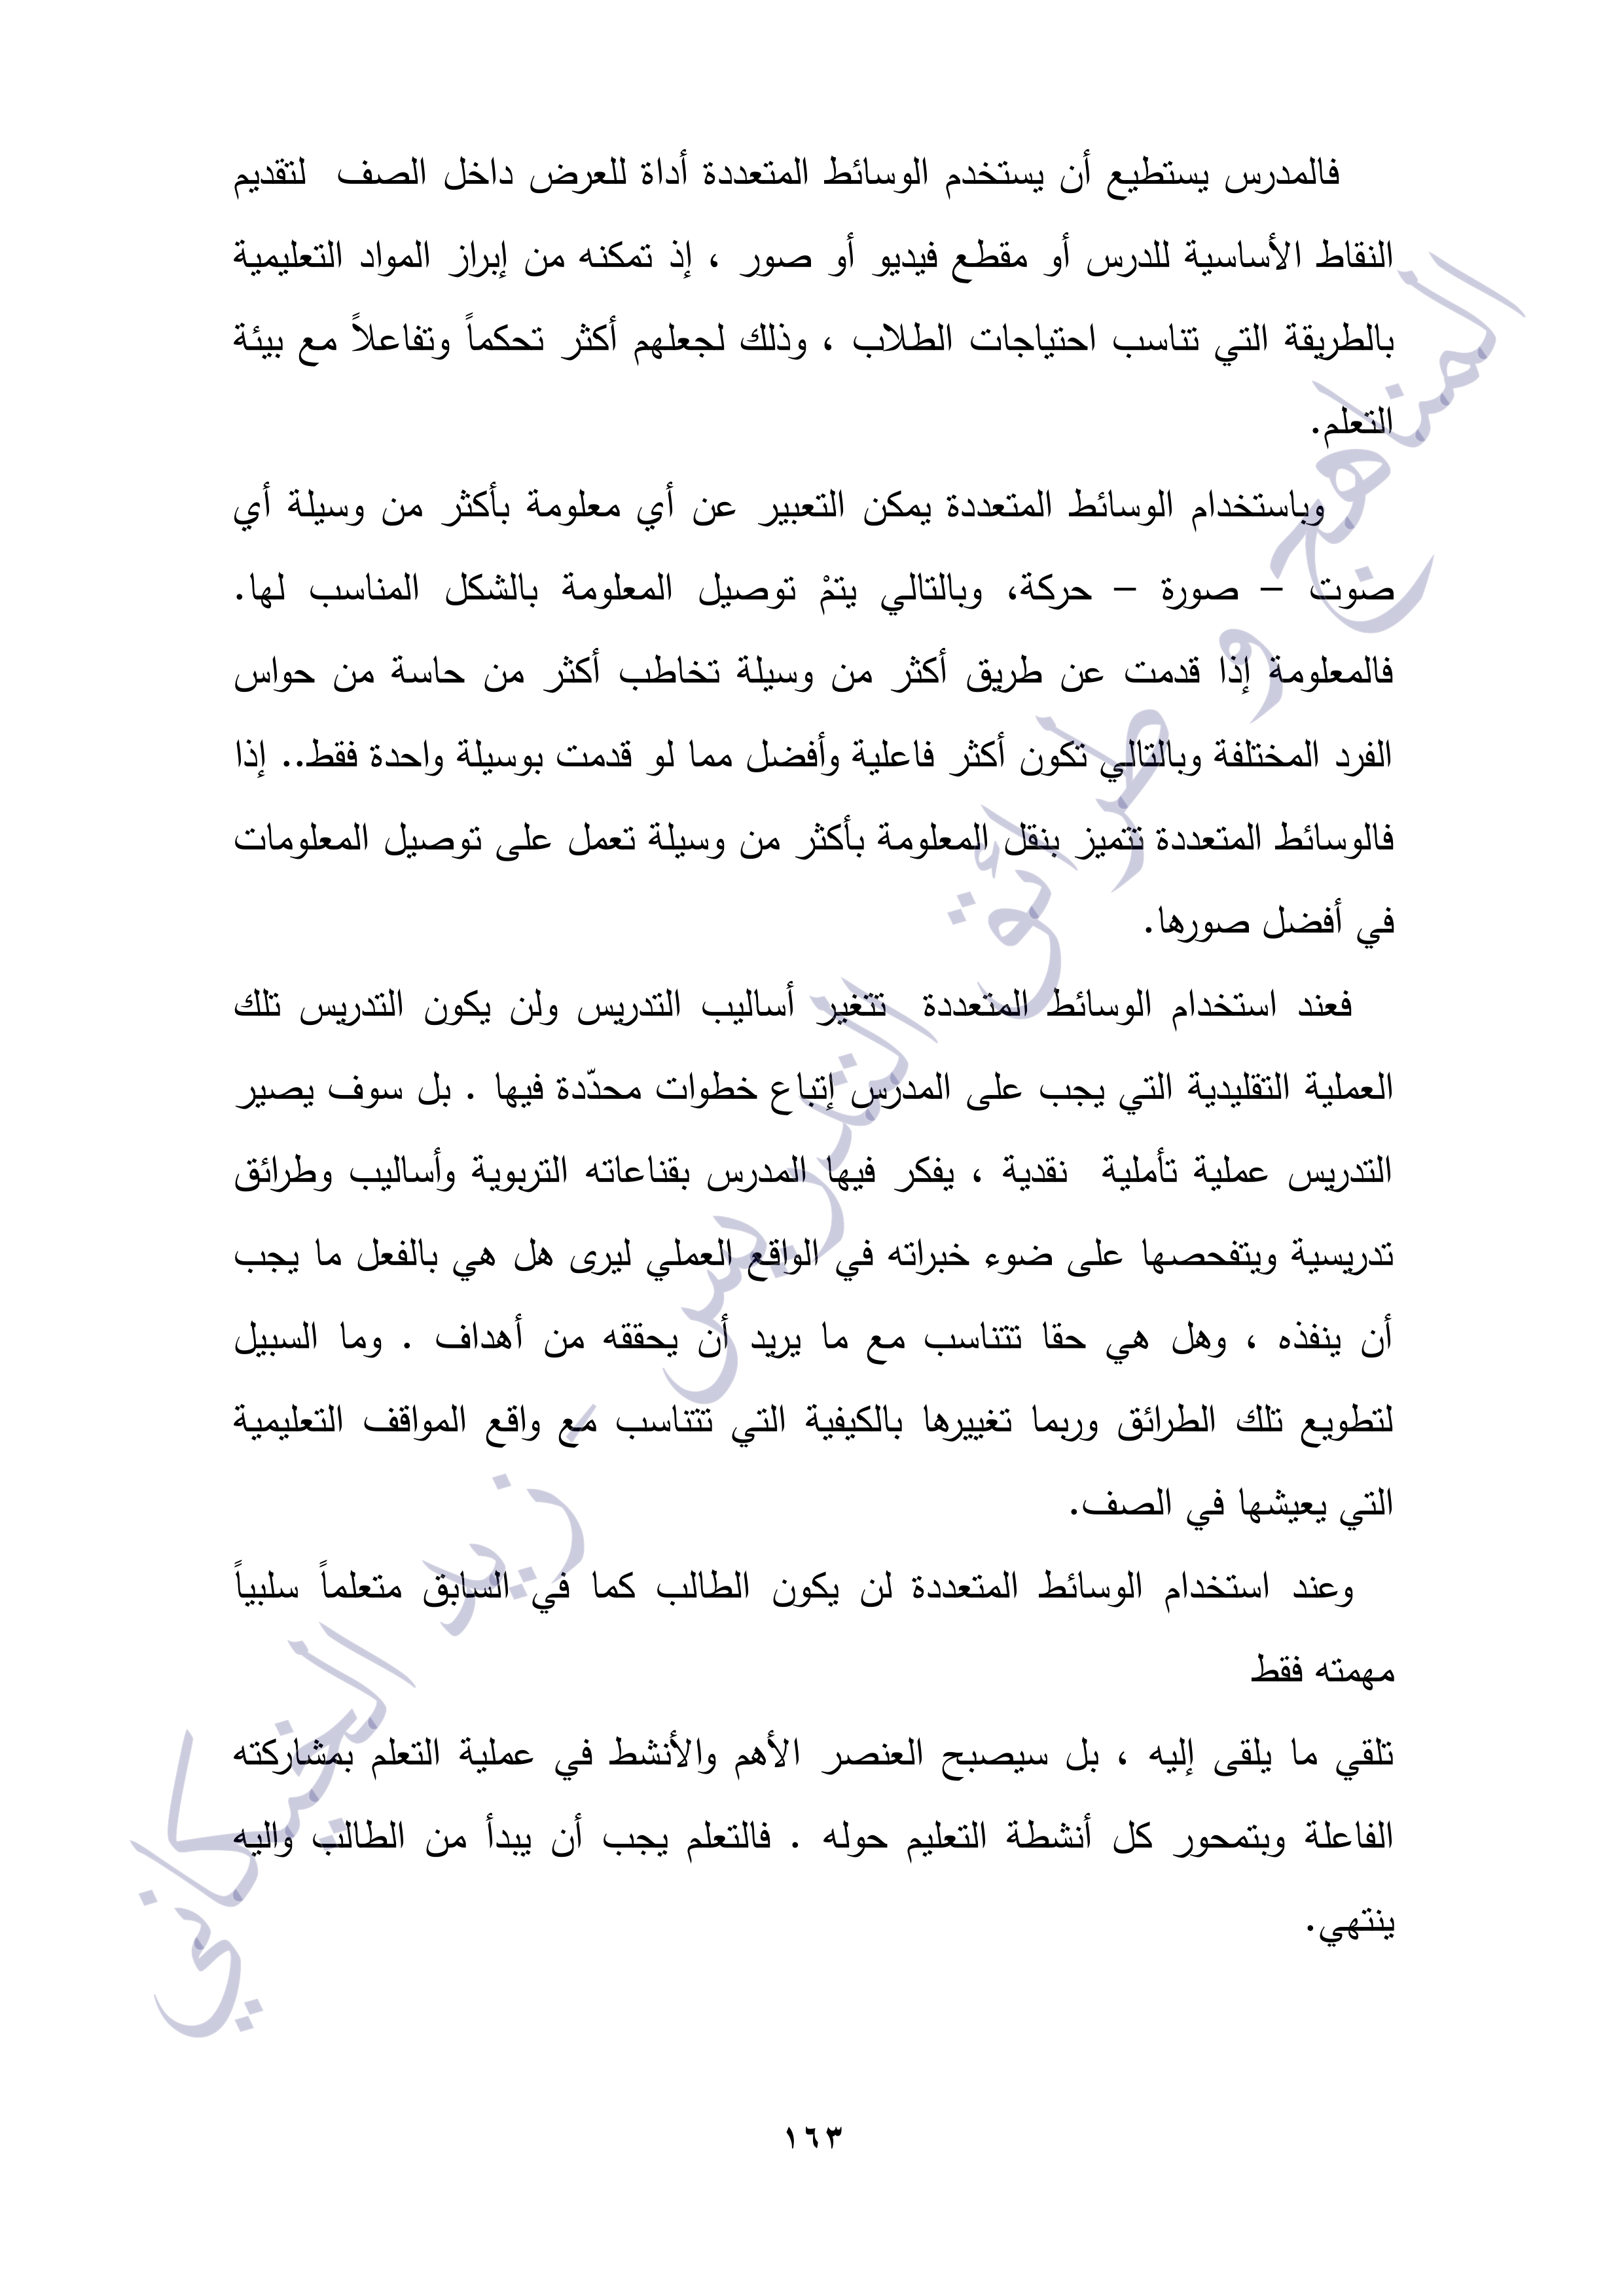 فالمدرس يستطيع أن يستخدم الوسائط المتعددة أداة للعرض داخل الصف لتقديم
النقاط الأساسية للدرس أو مقطع فيديو أو صور ، إذ تمكنه من إبراز المواد التعليمية
بالطريقة التي تناسب احتياجات الطلاب ، وذلك لجعلهم أكثر تحكماً وتفاعلاً مع بيئة
التعلم.
وباستخدام الوسائط المتعددة يمكن التعبير عن أي معلومة بأكثر من وسيلة أي
صوت – صورة – حركة، وبالتالي يتمْ توصيل المعلومة بالشكل المناسب لها.
فالمعلومة إذا قدمت عن طريق أكثر من وسيلة تخاطب أكثر من حاسة من حواس
الفرد المختلفة وبالتالي تكون أكثر فاعلية وأفضل مما لو قدمت بوسيلة واحدة فقط.. إذا
فالوسائط المتعددة تتميز بنقل المعلومة بأكثر من وسيلة تعمل على توصيل المعلومات
في أفضل صورها.
فعند استخدام الوسائط المتعددة تتغير أساليب التدريس ولن يكون التدريس تلك
العملية التقليدية التي يجب على المدرس إتباع خطوات محدّدة فيها . بل سوف يصير
التدريس عملية تأملية نقدية ، يفكر فيها المدرس بقناعاته التربوية وأساليب وطرائق
تدريسية ويتفحصها على ضوء خبراته في الواقع العملي ليرى هل هي بالفعل ما يجب
أن ينفذه ، وهل هي حقا تتناسب مع ما يريد أن يحققه من أهداف . وما السبيل
لتطويع تلك الطرائق وربما تغييرها بالكيفية التي تتناسب مع واقع المواقف التعليمية
التي يعيشها في الصف.
وعند استخدام الوسائط المتعددة لن يكون الطالب كما في السابق متعلماً سلبياً
مهمته فقط
تلقي ما يلقى إليه ، بل سيصبح العنصر الأهم والأنشط في عملية التعلم بمشاركته
الفاعلة وبتمحور كل أنشطة التعليم حوله . فالتعلم يجب أن يبدأ من الطالب واليه
ينتهي.
المناهج و طرائق التدريس - زيد الخيكاني
١٦٣